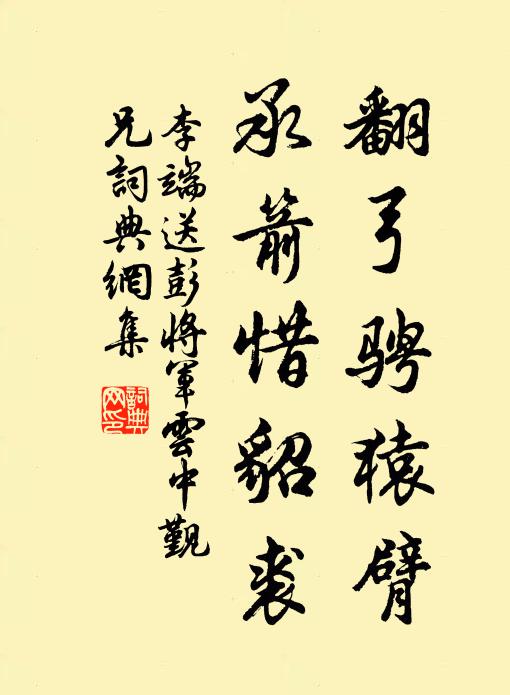 翻弓騁猿臂
承箭惜貂裘
李端送彭將軍雲中覲
兄詞典網集
詞典
网印